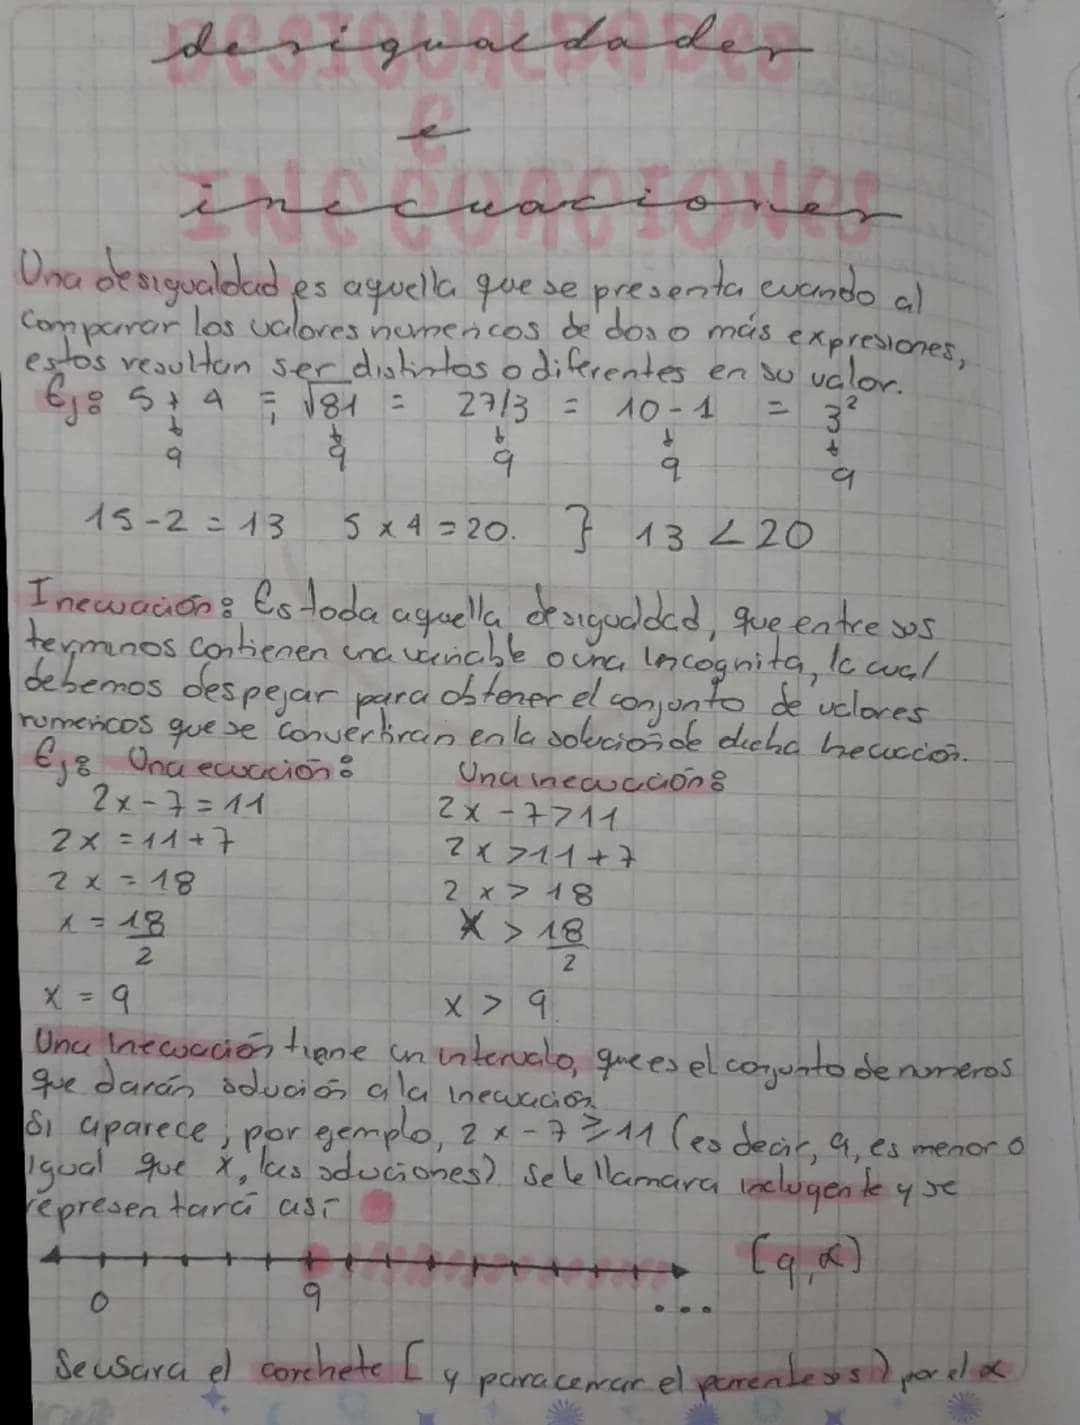 desigualdades
e
inecuaciones
Una desigualdad es aquella que se presenta cuando al
comparar los valores numericos de dos o más expresiones,
estos resultan ser distintos o diferentes en su valor.
Ej: 5 + 4 = √81 = 27/3 = 10 - 1 = 3²
9 9 9 9 9
15 - 2 = 13 5 x 4 = 20. } 13 < 20
Inecuación: Es toda aquella desigualdad, que entre sus
terminos contienen una variable o una incognita, la cual
debemos despejar para obtener el conjunto de valores
numericos que se convertiran en la solución de dicha Inecuación.
Ej: Una ecuación: Una inecuación:
2x - 7 = 11 2x - 7 > 11
2x = 11 + 7 2x > 11 + 7
2x = 18 2x > 18
x = 18 x > 18
2 2
x = 9 x > 9.
Una Inecuación tiene un intervalo, que es el conjunto de numeros
que darán solución a la inecuación.
Si aparece, por ejemplo, 2x - 7 ≥ 11 (es decir, 9, es menor o
igual que x, las soluciones) se le llamara incluyente y se
representará así
[9, ∝)
0 9 ...
Se usara el corchete [ y para cerrar el parentesis ) por el ∝